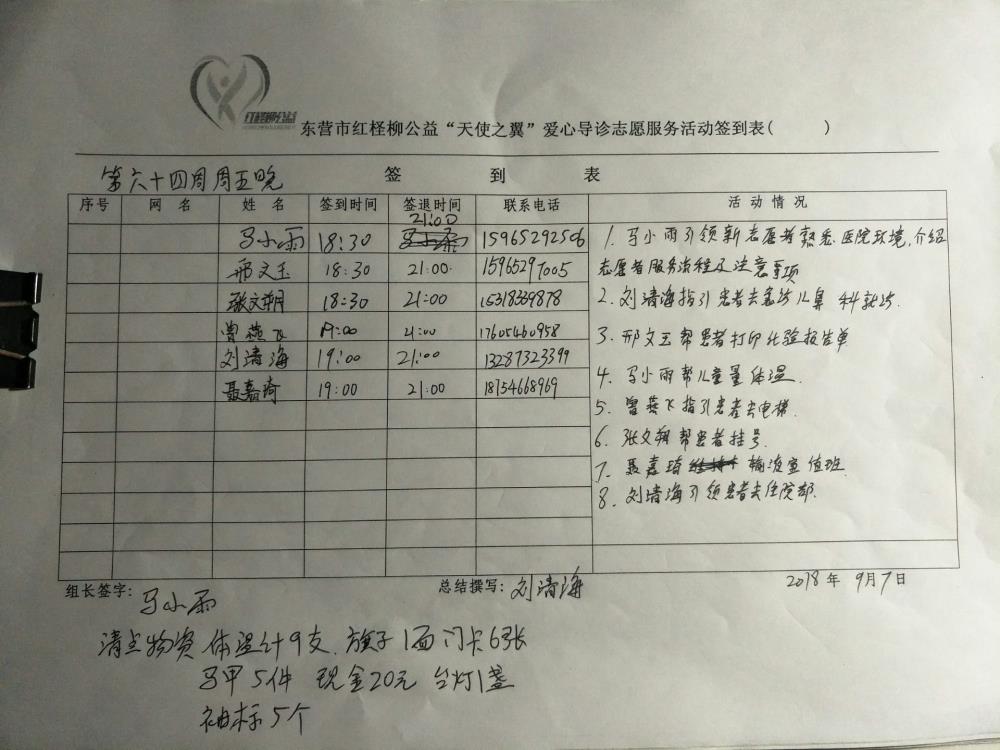 红柽柳公益
东营市红柽柳公益“天使之翼”爱心导诊志愿服务活动签到表(　　)
第六十四周周五晚
签 到 表
序号 网名 姓名 签到时间 签退时间 联系电话 活动情况
马小雨 18:30 21:00 15965292506
邢文玉 18:30 21:00 15965297005
张文朔 18:30 21:00 15318339878
曾燕飞 19:00 21:00 17605460958
刘清海 19:00 21:00 13287323399
聂嘉琦 19:00 21:00 18754668969
1. 马小雨引领新志愿者熟悉医院环境,介绍
志愿者服务流程及注意事项
2. 刘清海指引患者去急诊儿鼻科就诊.
3. 邢文玉帮患者打印化验报告单
4. 马小雨帮儿童量体温.
5. 曾燕飞指引患者去电梯.
6. 张文朔帮患者挂号.
7. 聂嘉琦 输液室值班
8. 刘清海引领患者去住院部.
组长签字: 马小雨 总结撰写: 刘清海 2018年 9月7日
清点物资 体温计9支. 旗子1面 门卡6张
马甲5件 现金20元 台灯1盏
袖标5个